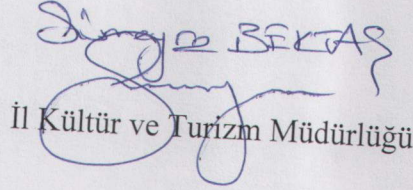 Sümeyra BEKTAŞ
İl Kültür ve Turizm Müdürlüğü